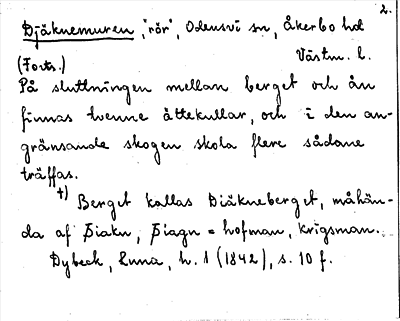 2.
Djäknemuren, "rör", Odensvi sn, Åkerbo hd
(Forts.) Västm. l.
På sluttningen mellan berget och ån
finnas tvenne ättekullar, och i den an-
gränsande skogen skola flere sådane
träffas.
+) Berget kallas Diäkneberget, måhän-
da af Þiakn, Þiagn = hofman, krigsman.
Dybeck, Runa, h. 1 (1842), s. 10 f.